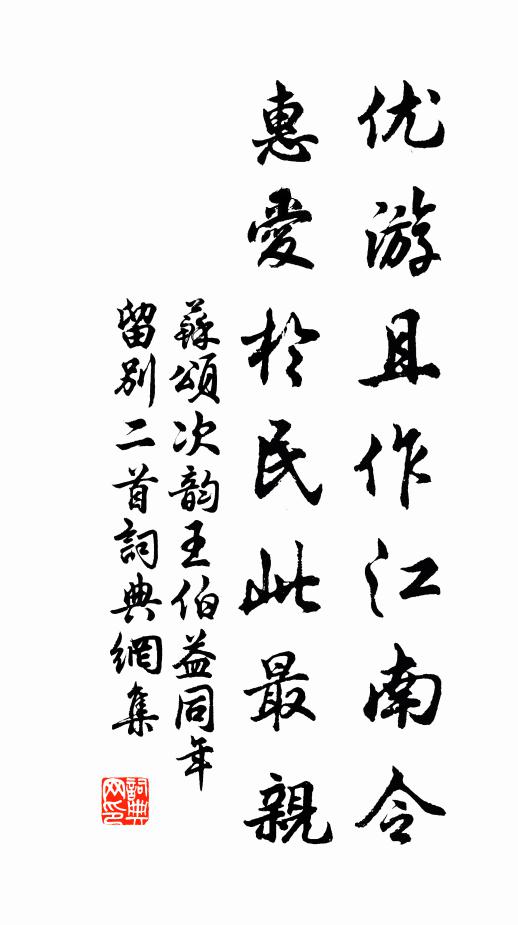 优游且作江南令
惠愛於民此最親
蘇頌次韵王伯益同年
留别二首詞典網集
詞典
网印